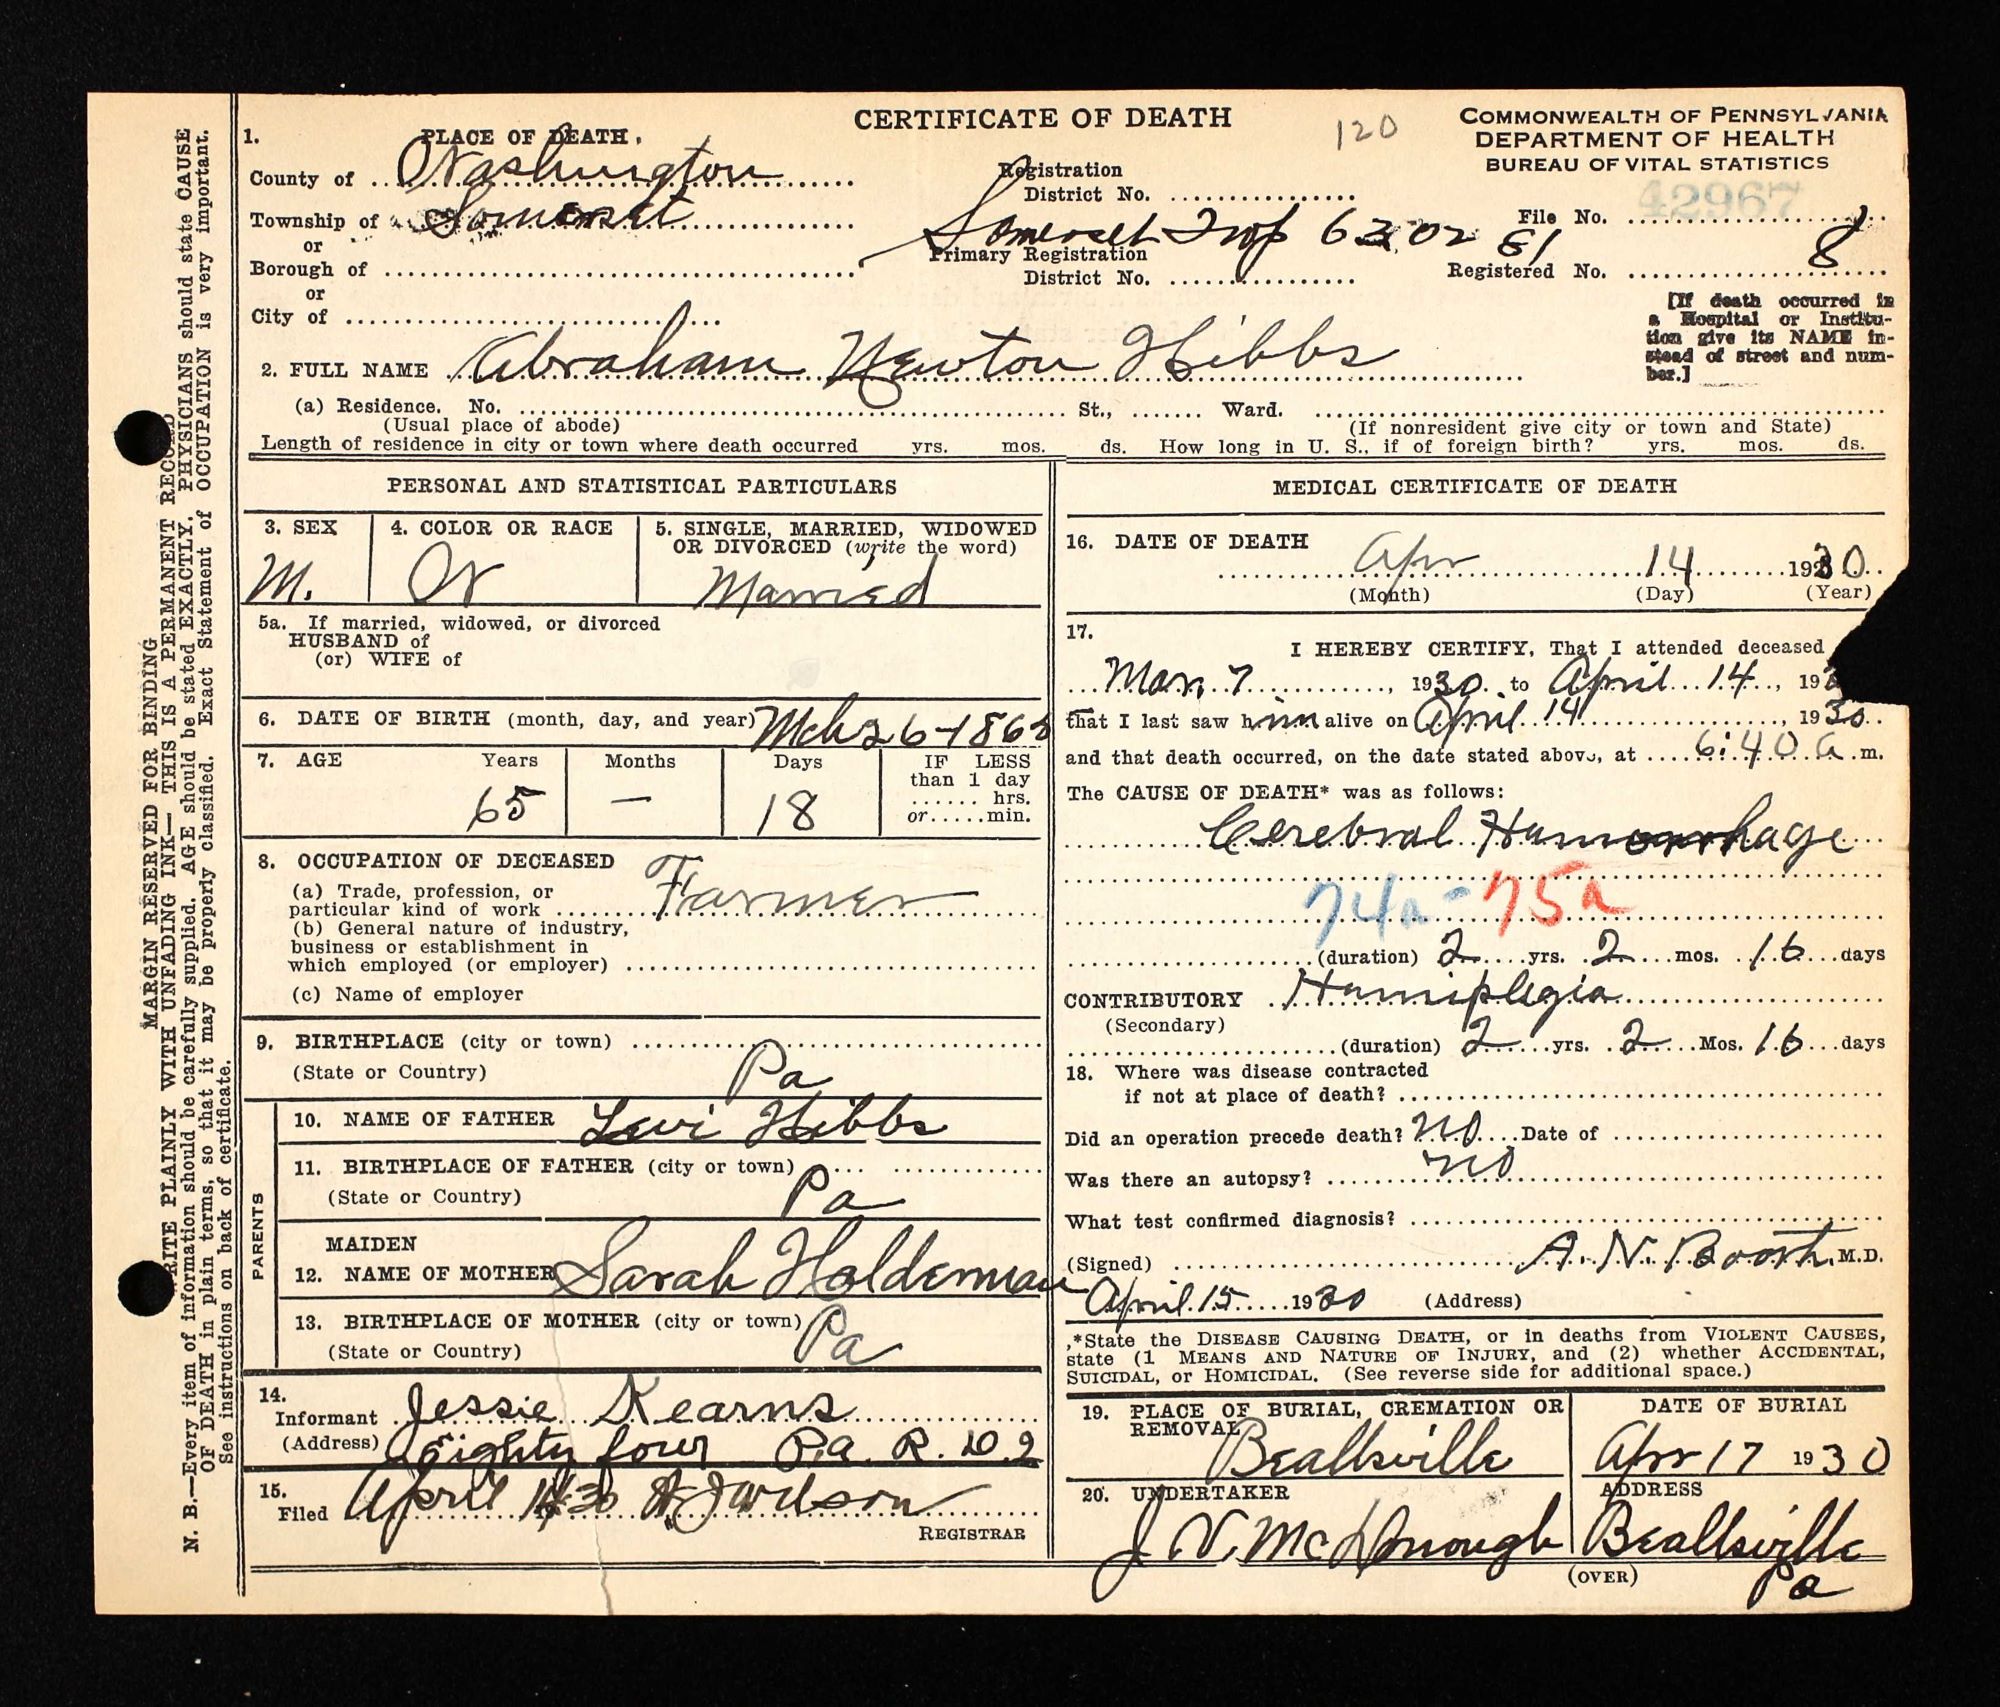 CERTIFICATE OF DEATH
120
COMMONWEALTH OF PENNSYLVANIA
DEPARTMENT OF HEALTH
BUREAU OF VITAL STATISTICS
1. PLACE OF DEATH.
County of Washington
Township of Somerset
or
Borough of
or
City of
Registration
District No.
Somerset Twp 63 02 81
Primary Registration
District No.
42967
File No.
Registered No. 8
[If death occurred in
a Hospital or Institu-
tion give its NAME in-
stead of street and num-
ber.]
2. FULL NAME Abraham Newton Hibbs
(a) Residence. No. St., Ward.
(Usual place of abode) (If nonresident give city or town and State)
Length of residence in city or town where death occurred yrs. mos. ds. How long in U. S., if of foreign birth? yrs. mos. ds.
PERSONAL AND STATISTICAL PARTICULARS
3. SEX
M.
4. COLOR OR RACE
W
5. SINGLE, MARRIED, WIDOWED
OR DIVORCED (write the word)
Married
5a. If married, widowed, or divorced
HUSBAND of
(or) WIFE of
6. DATE OF BIRTH (month, day, and year) Mch 26-186
7. AGE Years Months Days
65 — 18
IF LESS
than 1 day
hrs.
or min.
8. OCCUPATION OF DECEASED
(a) Trade, profession, or
particular kind of work Farmer
(b) General nature of industry,
business or establishment in
which employed (or employer)
(c) Name of employer
9. BIRTHPLACE (city or town)
(State or Country) Pa
PARENTS
10. NAME OF FATHER Levi Hibbs
11. BIRTHPLACE OF FATHER (city or town)
(State or Country) Pa
MAIDEN
12. NAME OF MOTHER Sarah Holdeman
13. BIRTHPLACE OF MOTHER (city or town)
(State or Country) Pa
14.
Informant Jessie Kearns
(Address) Eighty four Pa. R. D. 2
15.
Filed April 14 30 Judson
REGISTRAR
MEDICAL CERTIFICATE OF DEATH
16. DATE OF DEATH
Apr 14 1930
(Month) (Day) (Year)
17.
I HEREBY CERTIFY, That I attended deceased
Mar. 7, 1930 to April 14, 19
that I last saw him alive on April 14, 1930
and that death occurred, on the date stated above, at 6:40 a.m.
The CAUSE OF DEATH* was as follows:
Cerebral Hemorrhage
74a - 75a
(duration) 2 yrs. 2 mos. 16 days
CONTRIBUTORY Hemiplegia
(Secondary)
(duration) 2 yrs. 2 Mos. 16 days
18. Where was disease contracted
if not at place of death?
Did an operation precede death? no Date of
Was there an autopsy? no
What test confirmed diagnosis?
(Signed) A. N. Booth, M.D.
April 15 1930 (Address)
*State the DISEASE CAUSING DEATH, or in deaths from VIOLENT CAUSES,
state (1 MEANS AND NATURE OF INJURY, and (2) whether ACCIDENTAL,
SUICIDAL, or HOMICIDAL. (See reverse side for additional space.)
19. PLACE OF BURIAL, CREMATION OR
REMOVAL
Beallsville
DATE OF BURIAL
Apr 17 1930
20. UNDERTAKER
J. V. McDonough
ADDRESS
Beallsville
Pa
(OVER)
MARGIN RESERVED FOR BINDING
WRITE PLAINLY WITH UNFADING INK— THIS IS A PERMANENT RECORD
N. B.—Every item of information should be carefully supplied. AGE should be stated EXACTLY. PHYSICIANS should state CAUSE
OF DEATH in plain terms, so that it may be properly classified. Exact Statement of OCCUPATION is very important.
See instructions on back of certificate.